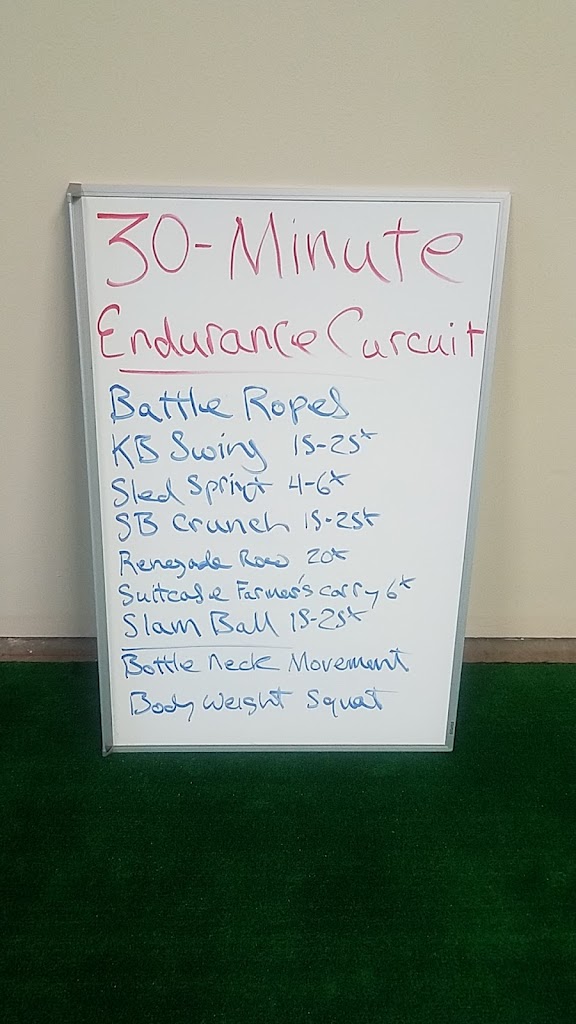 30-Minute
Endurance Curcuit
Battle Ropes
KB Swing 15-25x
Sled Sprint 4-6x
SB Crunch 15-25x
Renegade Row 20x
Suitcase Farmer's carry 6x
Slam Ball 15-25x
Bottle neck Movement
Body Weight Squat